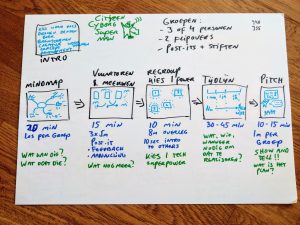 INTRO
CITIZEN
CYBORG
SUPER
MAN
GROEPEN:
- 3 OF 4 PERSONEN
- 2 FLIPOVERS
- POST-ITS + STIFTEN
MINDMAP
20 MIN
LOS PER GROEP
WAT KAN DIE?
WAT DOET DIE?
VUURTOREN
& MEEUWEN
15 MIN
3x 5M
POST-IT
- FEEDBACK
- AANVULLING
WAT NOG MEER?
REGROUP
KIES 1 POWER
10 MIN
8M OVERLEG
10 SEC INTRO
TO OTHERS
KIES 1 TECH
SUPERPOWER
TIJDLIJN
30-45 MIN
WAT, WIE,
WANNEER
NODIG OM
DAT TE
REALISEREN?
PITCH
10-15 MIN
1M PER
GROEP
SHOW AND
TELL!!
WAT IS HET
PLAN?